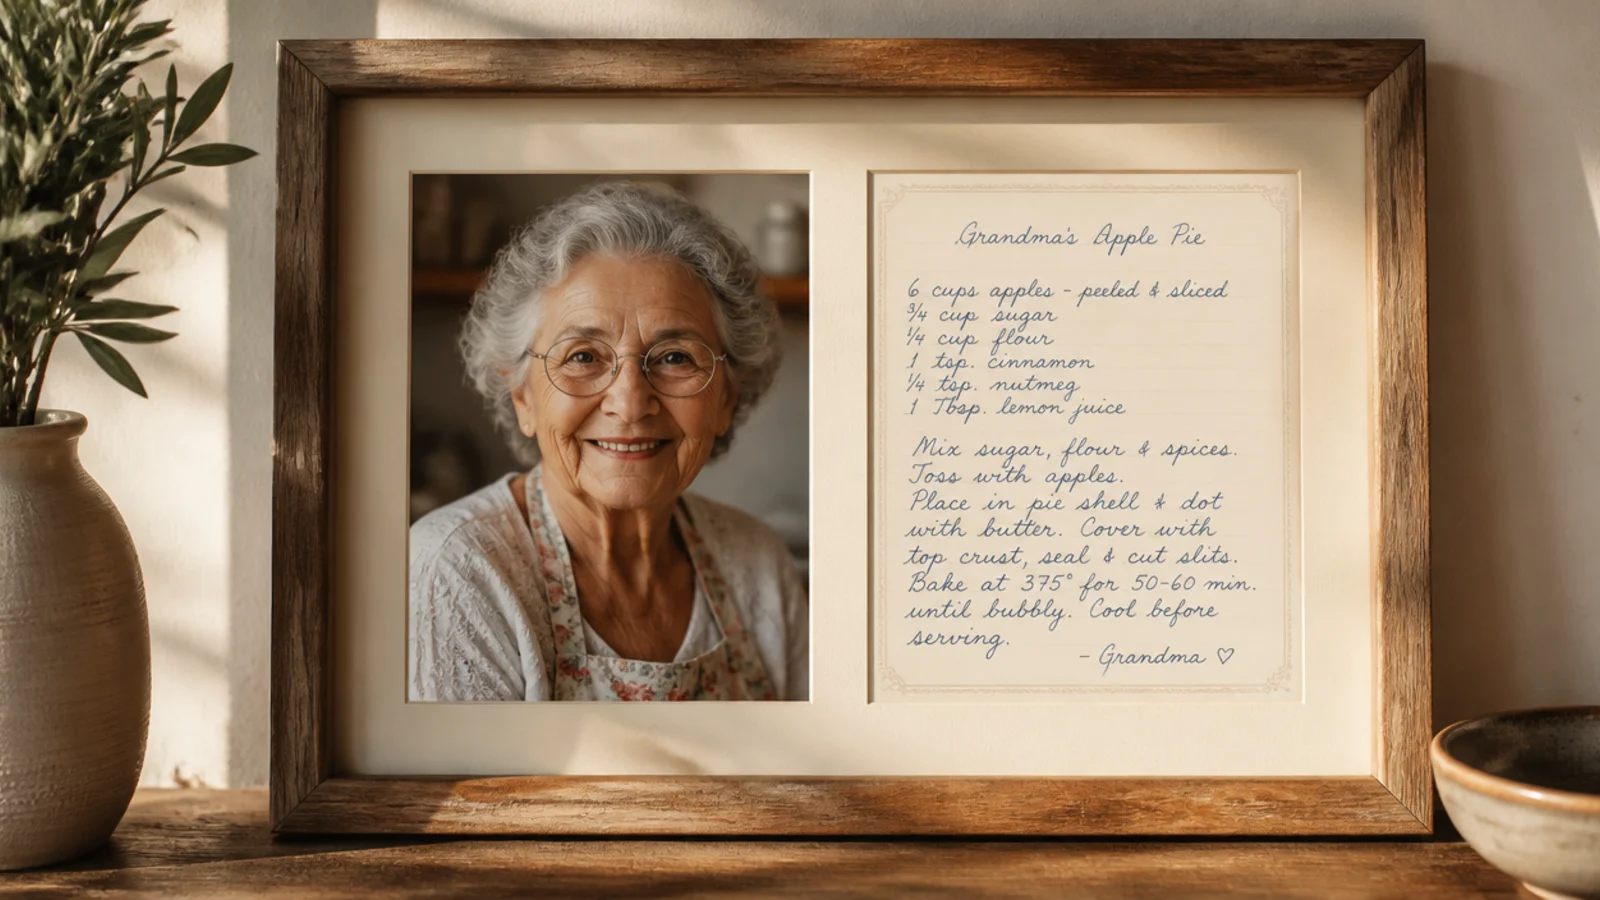 Grandma's Apple Pie
6 cups apples - peeled & sliced
3/4 cup sugar
1/4 cup flour
1 tsp. cinnamon
1/4 tsp. nutmeg
1 Tbsp. lemon juice
Mix sugar, flour & spices.
Toss with apples.
Place in pie shell & dot
with butter. Cover with
top crust, seal & cut slits.
Bake at 375° for 50-60 min.
until bubbly. Cool before
serving.
- Grandma ♡